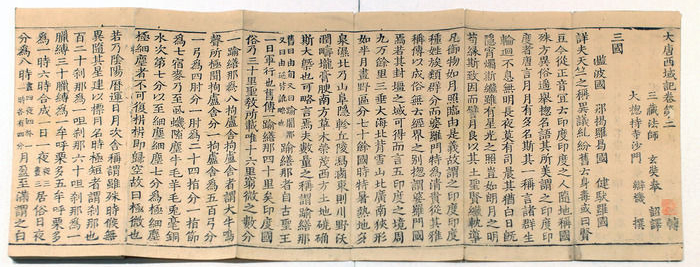 大唐西域記卷第二
三藏法師 玄奘奉 詔譯
大總持寺沙門 辯機 撰
三國
濫波國 那揭羅曷國 健馱羅國
詳夫天竺之稱異議糺紛舊云身毒或曰賢
豆今從正音宜云印度印度之人隨地稱國
殊方異俗遙舉總名語其所美謂之印度印
度者唐言月月有多名斯其一稱言諸群生
輪迴不息無明長夜莫有司晨其猶白日既
隱宵燭斯繼雖有星光之照豈如朗月之明
苟緣斯致因而譬月良以其土聖賢繼軌導
凡御物如月照臨由是義故謂之印度印度
種姓族類群分而婆羅門特為清貴從其雅
稱傳以成俗無云經界之別總謂婆羅門國
焉若其封疆之域可得而言五印度之境周
九万餘里三垂大海北背雪山北廣南狹形
如半月畫野區分七十餘國時特暑熱地多
泉濕北乃山阜隱軫丘陵舄鹵東則川野沃
潤疇壠膏腴南方草木榮茂西方土地磽确
斯大槩也可略言焉夫數量之稱謂踰繕那
舊曰由旬又曰踰闍那又曰由延皆訛略也踰繕那者自古聖王
一日軍行也舊傳一踰繕那四十里矣印度國
俗乃三十里聖教所載唯十六里窮微之數分
一踰繕那為八拘盧舍拘盧舍者謂大牛鳴
聲所極聞稱拘盧舍分一拘盧舍為五百弓分
一弓為四肘分一肘為二十四指分一指節
為七宿麥乃至虱蟣隙塵牛毛羊毛兔毫銅
水次第七分以至細塵細塵七分為極細塵
極細塵者不可復析析即歸空故曰極微也
若乃陰陽曆運日月次舍稱謂雖殊時候無
異隨其星建以標月名時極短者謂剎那也
百二十剎那為一呾剎那六十呾剎那為一
臘縛三十臘縛為一牟呼栗多五牟呼栗多
為一時六時合成一日一夜晝三夜三居俗日夜
分為八時晝四夜四於一一時各有四分月盈至滿謂之白